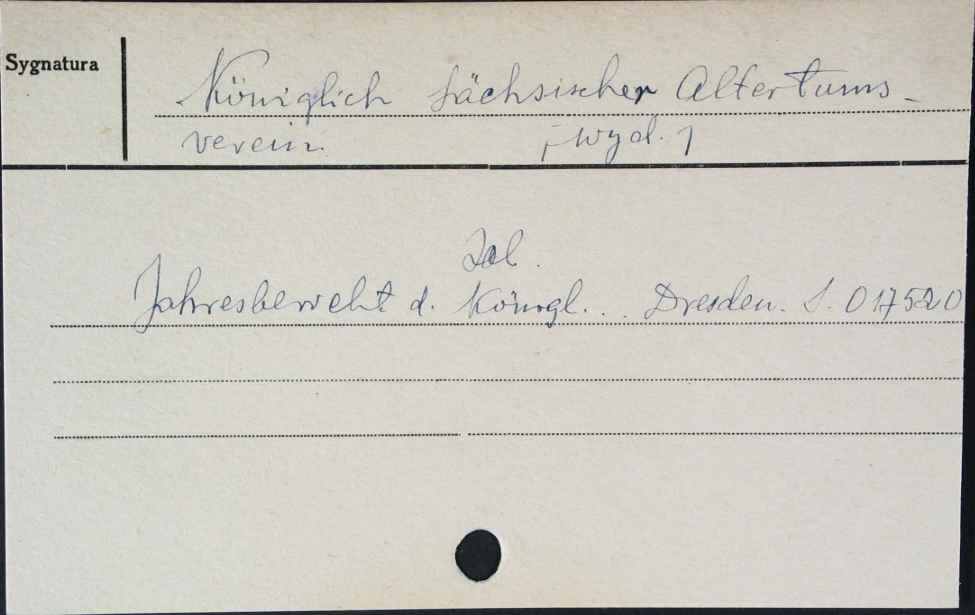 Sygnatura
Königlich Sächsischer Altertums-
verein [Wyd.]
Zob.
Jahresbericht d. Königl... Dresden. S. 017520